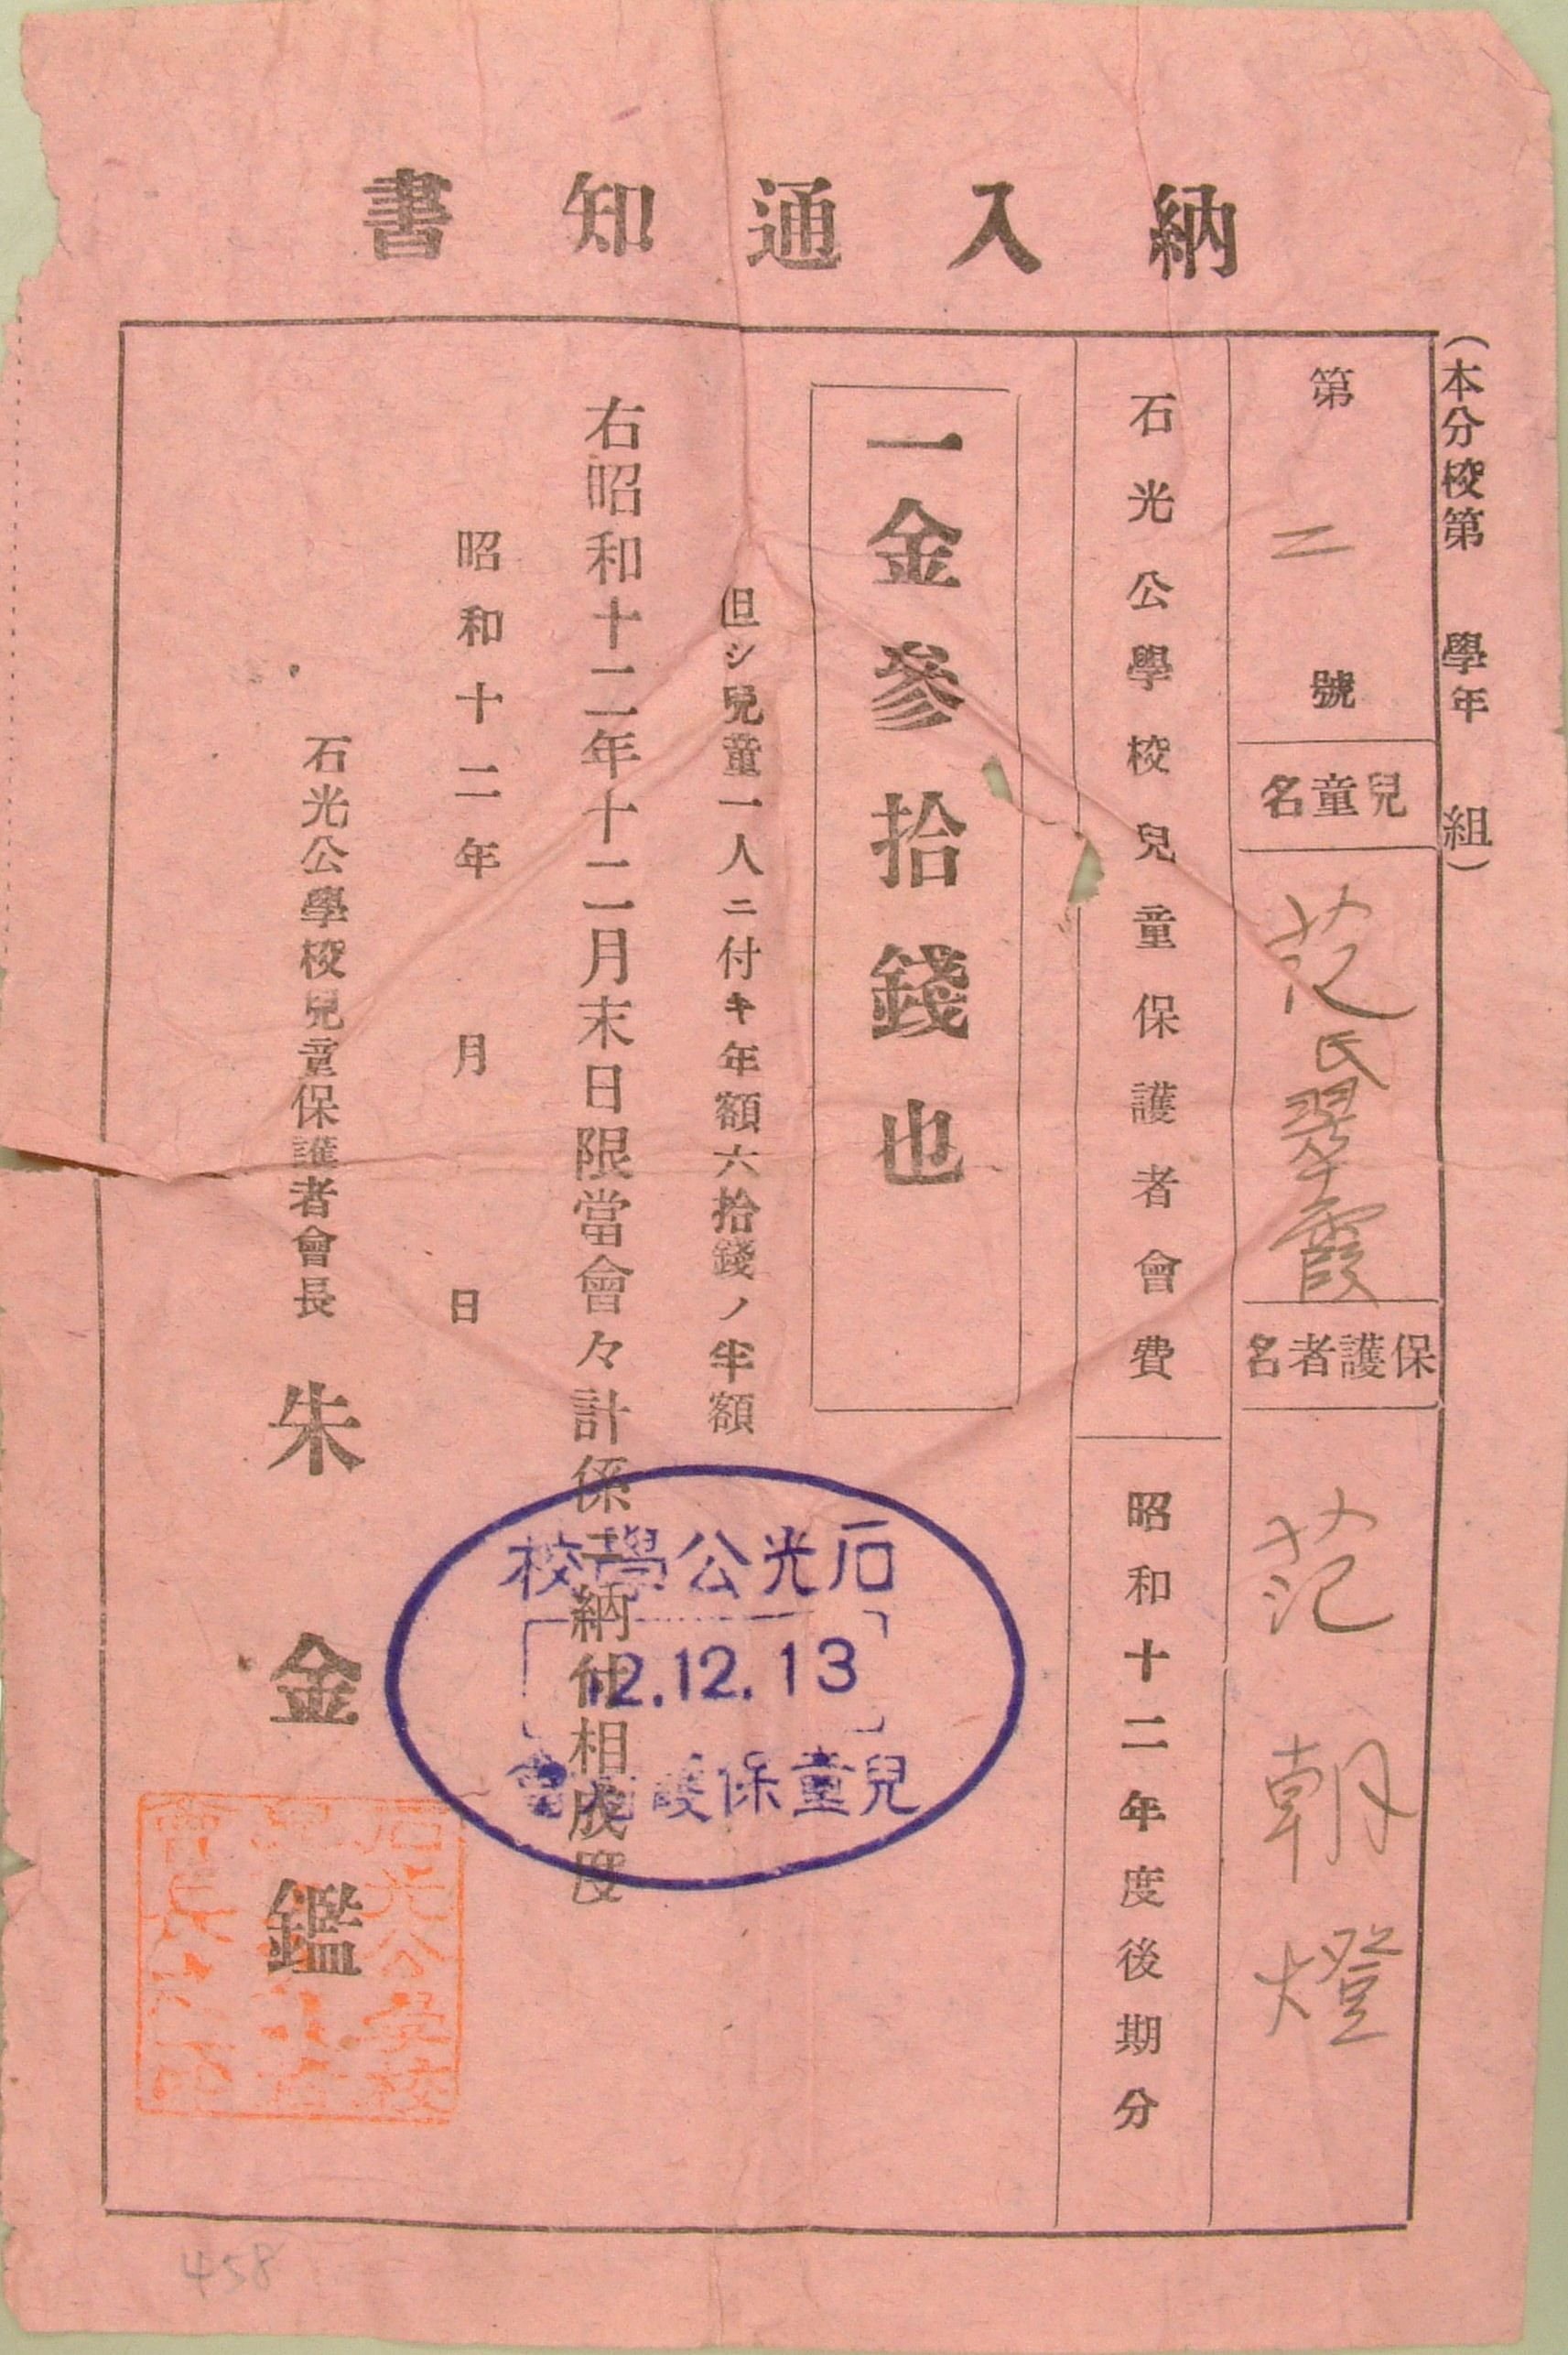 納入通知書
（本分校第　學年　組）
第二號
兒童名
范氏翠霞
保護者名
范朝燈
石光公學校兒童保護者會費
昭和十二年度後期分
一金參拾錢也
但シ兒童一人ニ付キ年額六拾錢ノ半額
右昭和十二年十二月末日限當會々計係ニ納付相成度
昭和十二年　月　日
石光公學校兒童保護者會長
朱金鑑
石光公學校
12.12.13
兒童保護者會
458